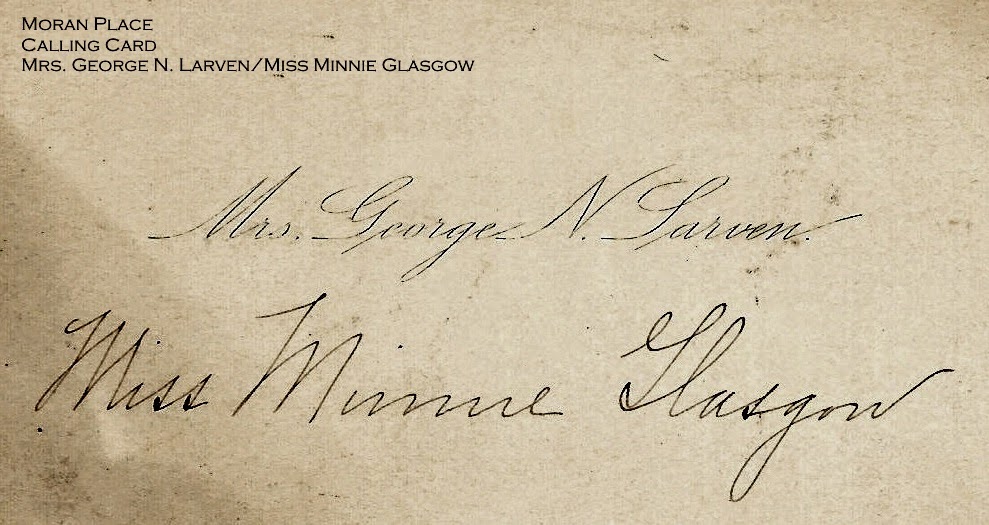 Moran Place
Calling Card
Mrs. George N. Larven/Miss Minnie Glasgow
Mrs. George N. Larven.
Miss Minnie Glasgow